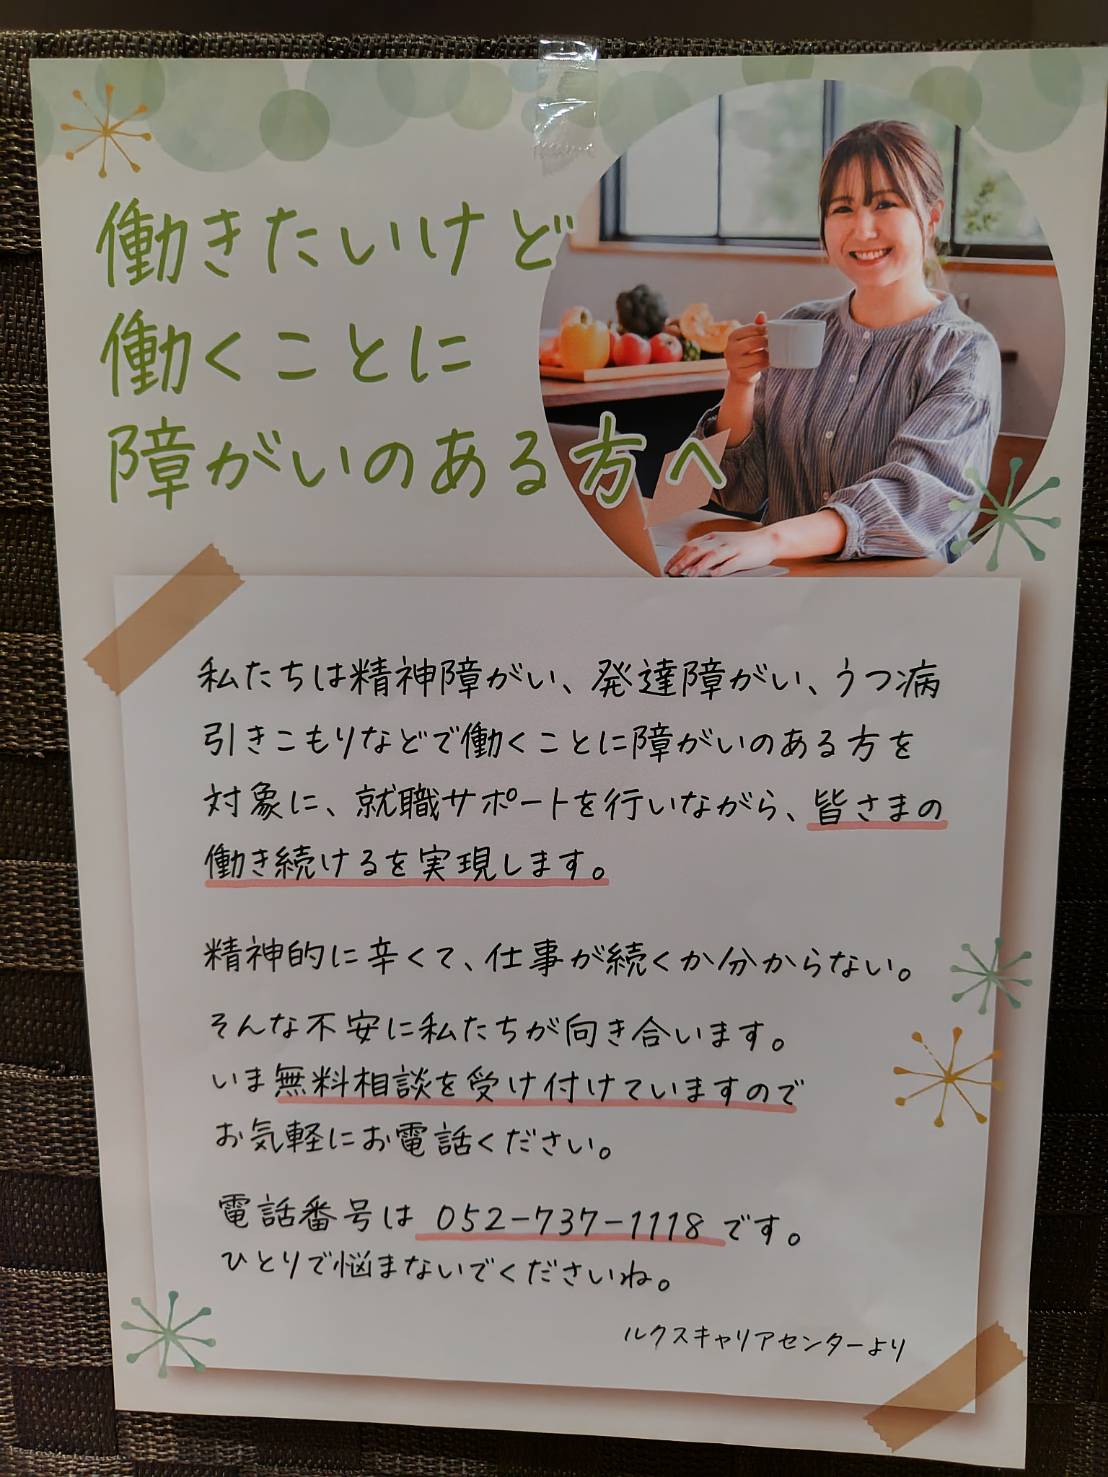 働きたいけど
働くことに
障がいのある方へ
私たちは精神障がい、発達障がい、うつ病
引きこもりなどで働くことに障がいのある方を
対象に、就職サポートを行いながら、皆さまの
働き続けるを実現します。
精神的に辛くて、仕事が続くか分からない。
そんな不安に私たちが向き合います。
いま無料相談を受け付けていますので
お気軽にお電話ください。
電話番号は 052-737-1118 です。
ひとりで悩まないでくださいね。
ルクスキャリアセンターより